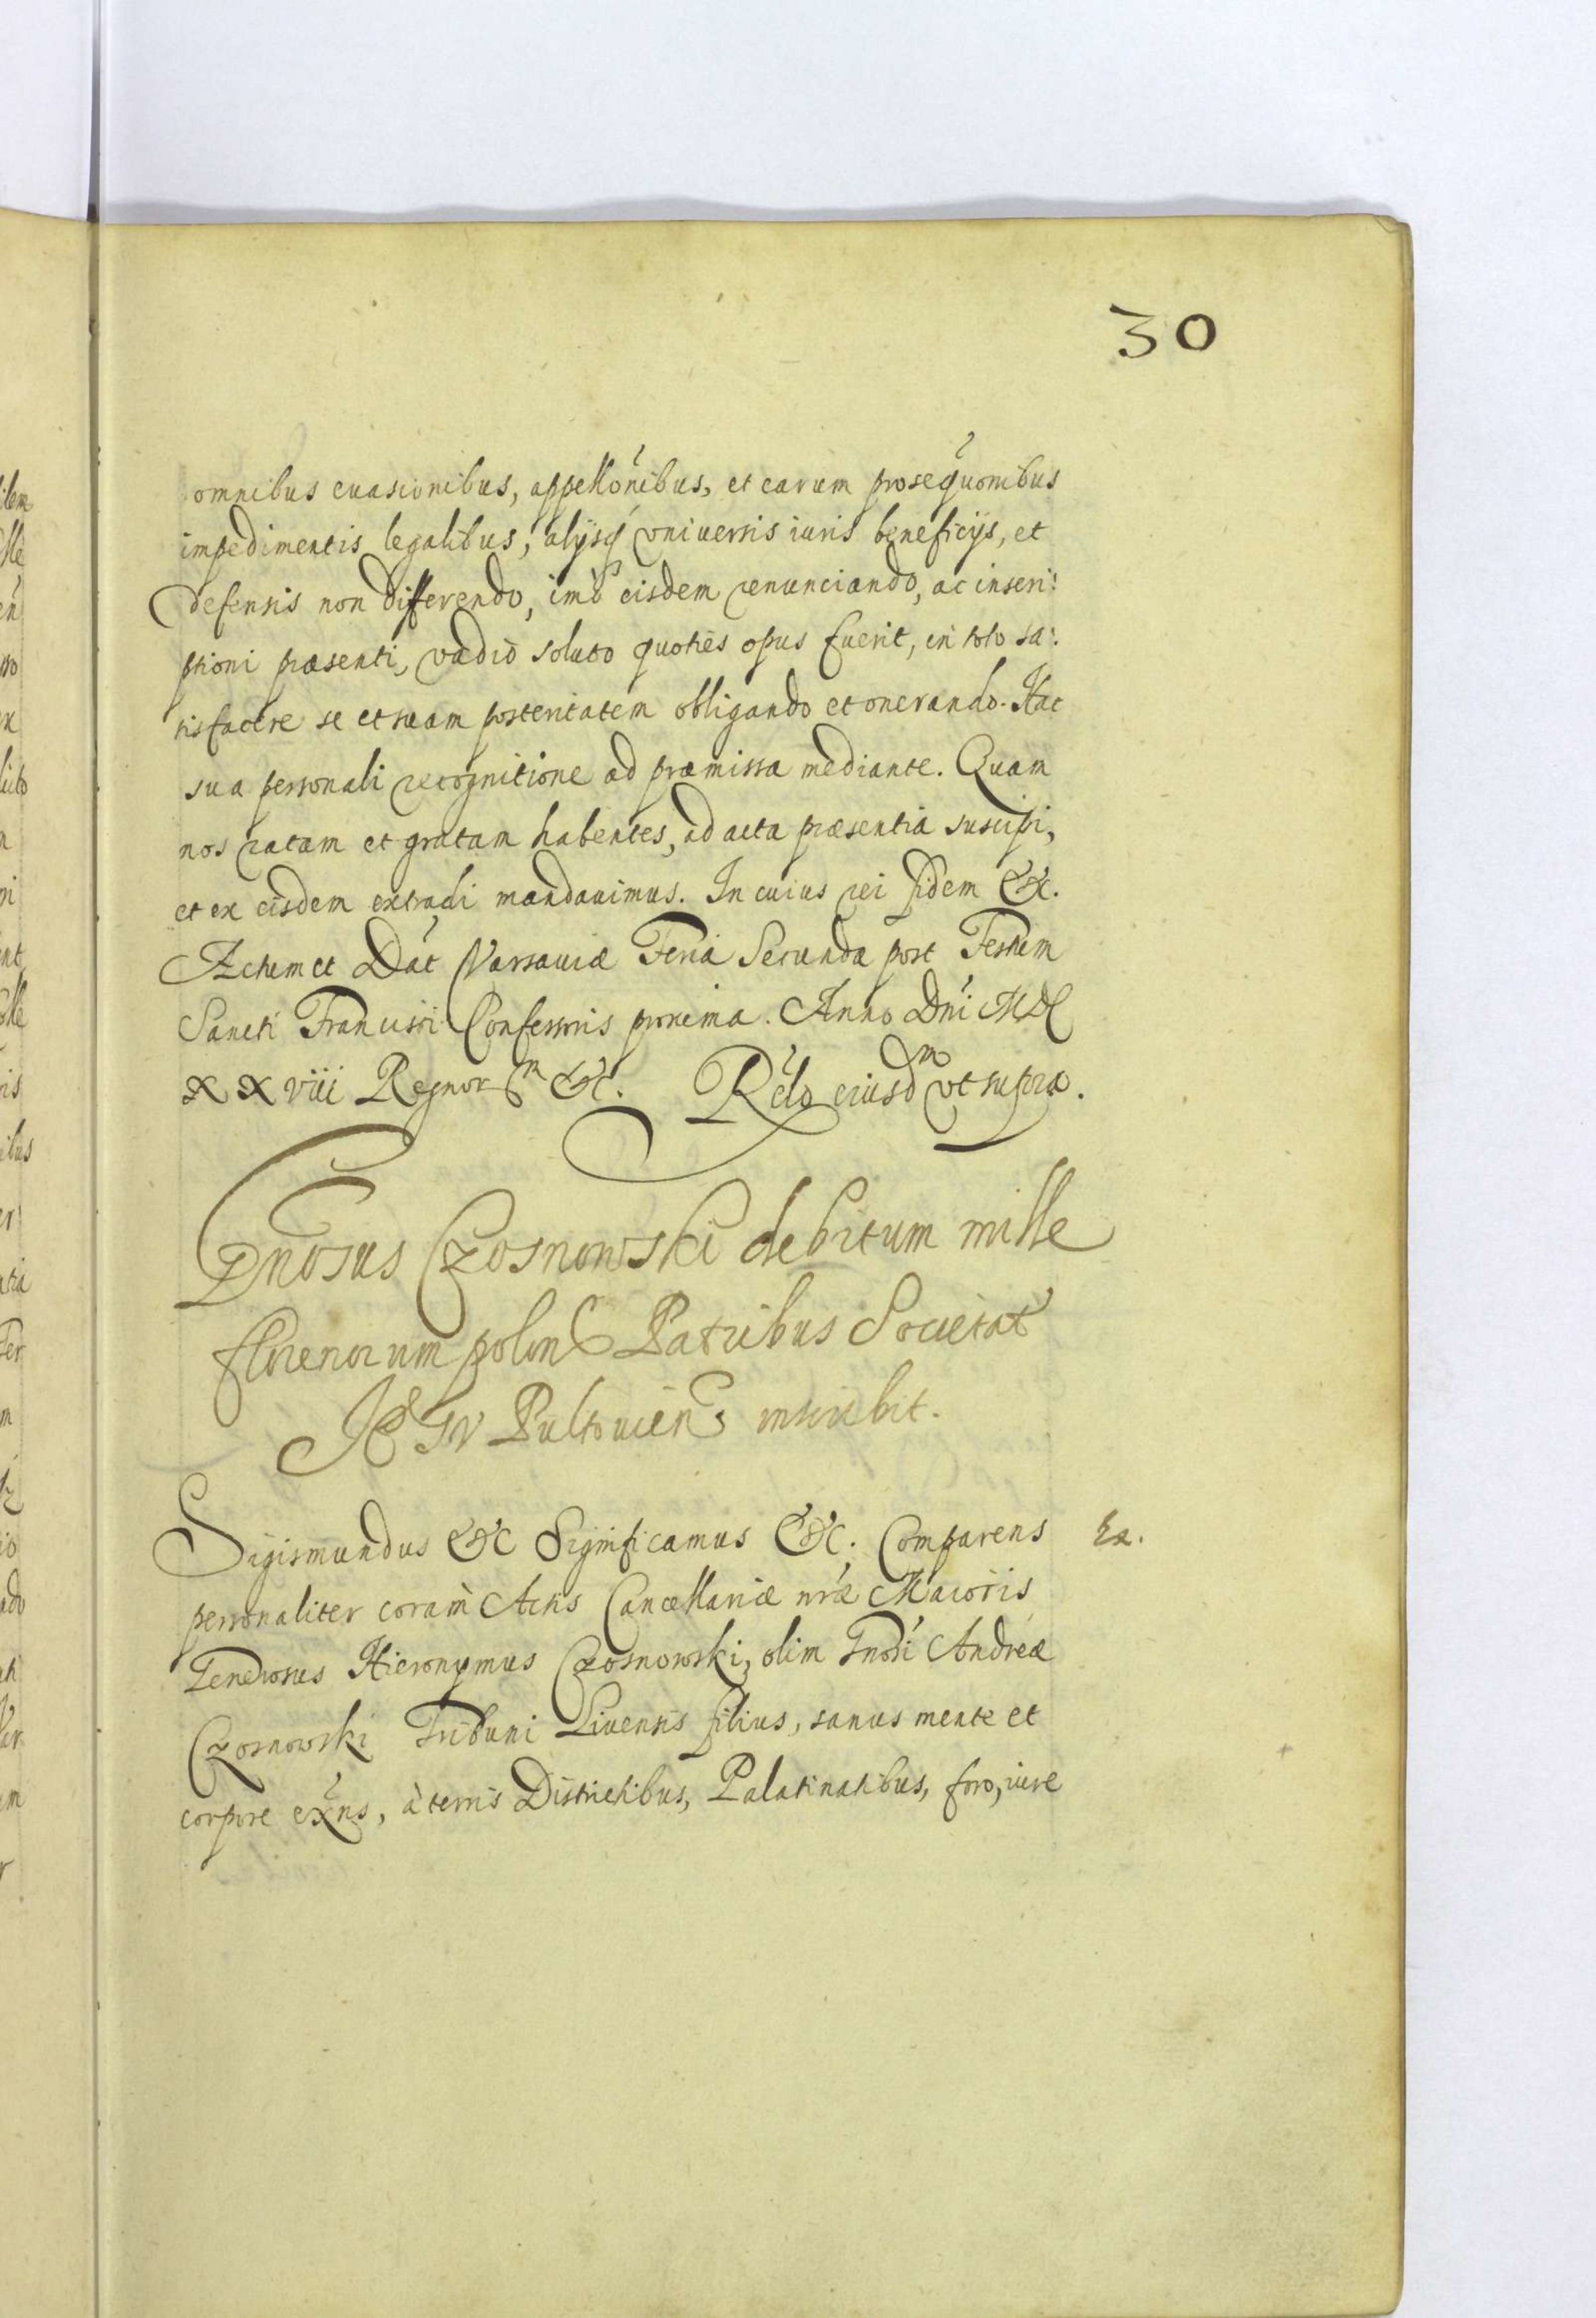 30
omnibus euasionibus, appellońibus, et earum prosequonibus
impedimentis legalibus, alijsq̃ vniuersis iuris beneficijs, et
defensis non differendo, imò eisdem renunciando, ac inscri:
ptioni præsenti, vadio soluto quoties opus fuerit, in toto sa:
tisfacere se et suam posteritatem obligando et onerando. Hac
sua personali recognitione ad præmissa mediante. Quam
nos ratam et gratam habentes, ad acta præsentia suscipi,
et ex eisdem extradi mandauimus. In cuius rei fidem &c.
Actum et Dat Varsauiæ Feria Secunda post Festum
Sancti Francisci Confessoris proxima. Anno Dni MDC
XXviii Regnor m &c. Rélo eiusdm vt supra.
Gnosus Czosnowski debitum mille
florenorum polon Patribus Societat
IESV Pultouien inscribit.
Sigismundus &c Significamus &c. Comparens
Ex.
personaliter coram Actis Cancellariæ nræ Maioris
Generosus Hieronymus Czosnowski, olim Gnosi Andreæ
Czosnowski Tribuni Liuensis filius, sanus mente et
corpore exñs, à terris Districtibus, Palatinatibus, foro, iure